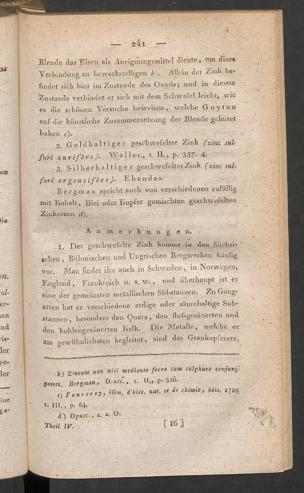 — 241 —
Blende das Eisen als Aneignungsmittel diente, um diese
Verbindung zu bewerkstelligen b). Allein der Zink be-
findet sich hier im Zustande des Oxyds; und in diesem
Zustande verbindet er sich mit dem Schwefel leicht, wie
es die schönen Versuche beweisen, welche Guyton
auf die künstliche Zusammensetzung der Blende geleitet
haben c).
2. Goldhaltiger geschwefelter Zink (zinc sul-
furé aurifère). Waller, t. II., p. 337- 4.
3. Silberhaltiger geschwefelter Zink (zinc sul-
furé argensifère). Ebendas.
Bergman spricht auch von verschiedenen zufällig
mit Kobalt, Blei oder Kupfer gemischten geschwefelten
Zinkerzen d).
Anmerkungen.
1. Der geschwefelte Zink kommt in den Sächsi-
schen, Böhmischen und Ungrischen Bergwerken häufig
vor. Man findet ihn auch in Schweden, in Norwegen,
England, Frankreich u. s. w., und überhaupt ist er
eine der gemeinsten metallischen Substanzen. Zu Gang-
arten hat er verschiedene erdige oder säurehaltige Sub-
stanzen, besonders den Quarz, den flussgesäuerten und
den kohlengesäuerten Kalk. Die Metalle, welche er
am gewöhnlichsten begleitet, sind das Graukupfererz,
b) Zincum non nisi mediante ferro cum sulphure conjung
potest, Bergman, Opusc., t. II., p. 336.
c) Fourcroy, élém. d'hist. nat. et de chimie, édit. 1789
t. III., p. 64.
d) Opusc., a. a. O.
Theil IV. [16]